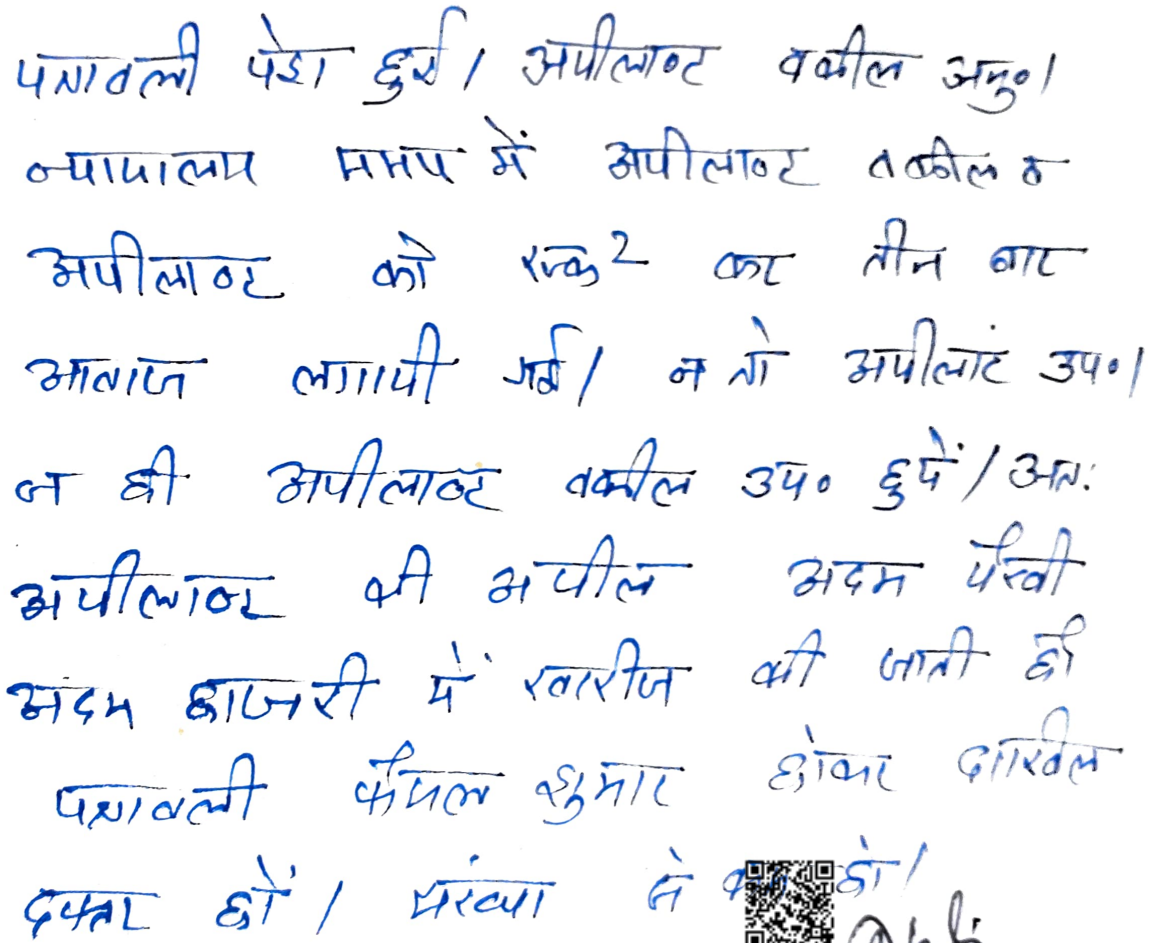 पत्रावली पेश हुई। अपीलाण्ट वकील अनु०।
न्यायालय समय में अपीलाण्ट वकील व
अपीलाण्ट को रूक2 कर तीन बार
आवाज लगायी गई। न तो अपीलांट उप०।
न ही अपीलाण्ट वकील उप० हुयें। अतः
अपीलाण्ट की अपील अदम पैरवी
अदम हाजरी में खारीज की जाती है
पत्रावली फैसल शुमार होकर दाखिल
दफ्तर हों। संख्या से हो।